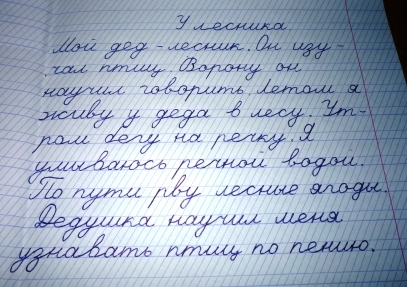 У лесника
Мой дед - лесник. Он изу-
чал птиц. Ворону он
научил говорить. Летом я
живу у деда в лесу. Ут-
ром бегу на речку. Я
умываюсь речной водой.
По пути рву лесные ягоды.
Дедушка научил меня
узнавать птиц по пению.